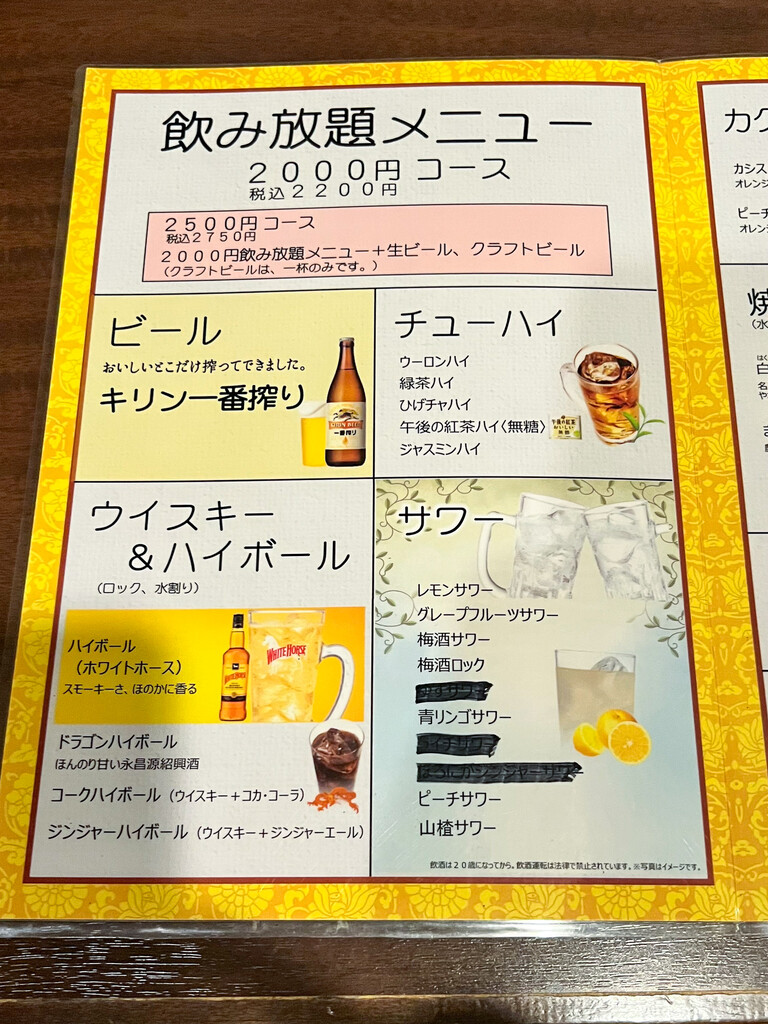 飲み放題メニュー
2000円コース
税込2200円
2500円コース
税込2750円
2000円飲み放題メニュー+生ビール、クラフトビール
(クラフトビールは、一杯のみです。)
ビール
おいしいとこだけ搾ってできました。
キリン一番搾り
KIRIN BEER
一番搾り
チューハイ
ウーロンハイ
緑茶ハイ
ひげチャハイ
午後の紅茶ハイ〈無糖〉
午後の紅茶
おいしい
無糖
ジャスミンハイ
ウイスキー
&ハイボール
(ロック、水割り)
ハイボール
(ホワイトホース)
スモーキーさ、ほのかに香る
WHITE HORSE
WHITE HORSE
ドラゴンハイボール
ほんのり甘い永昌源紹興酒
コークハイボール(ウイスキー+コカ・コーラ)
ジンジャーハイボール(ウイスキー+ジンジャーエール)
サワー
レモンサワー
グレープフルーツサワー
梅酒サワー
梅酒ロック
青リンゴサワー
ピーチサワー
山楂サワー
飲酒は20歳になってから。飲酒運転は法律で禁止されています。※写真はイメージです。
カク
カシス
オレンジ
ピーチ
オレン
焼
(水
はく
白
名
や